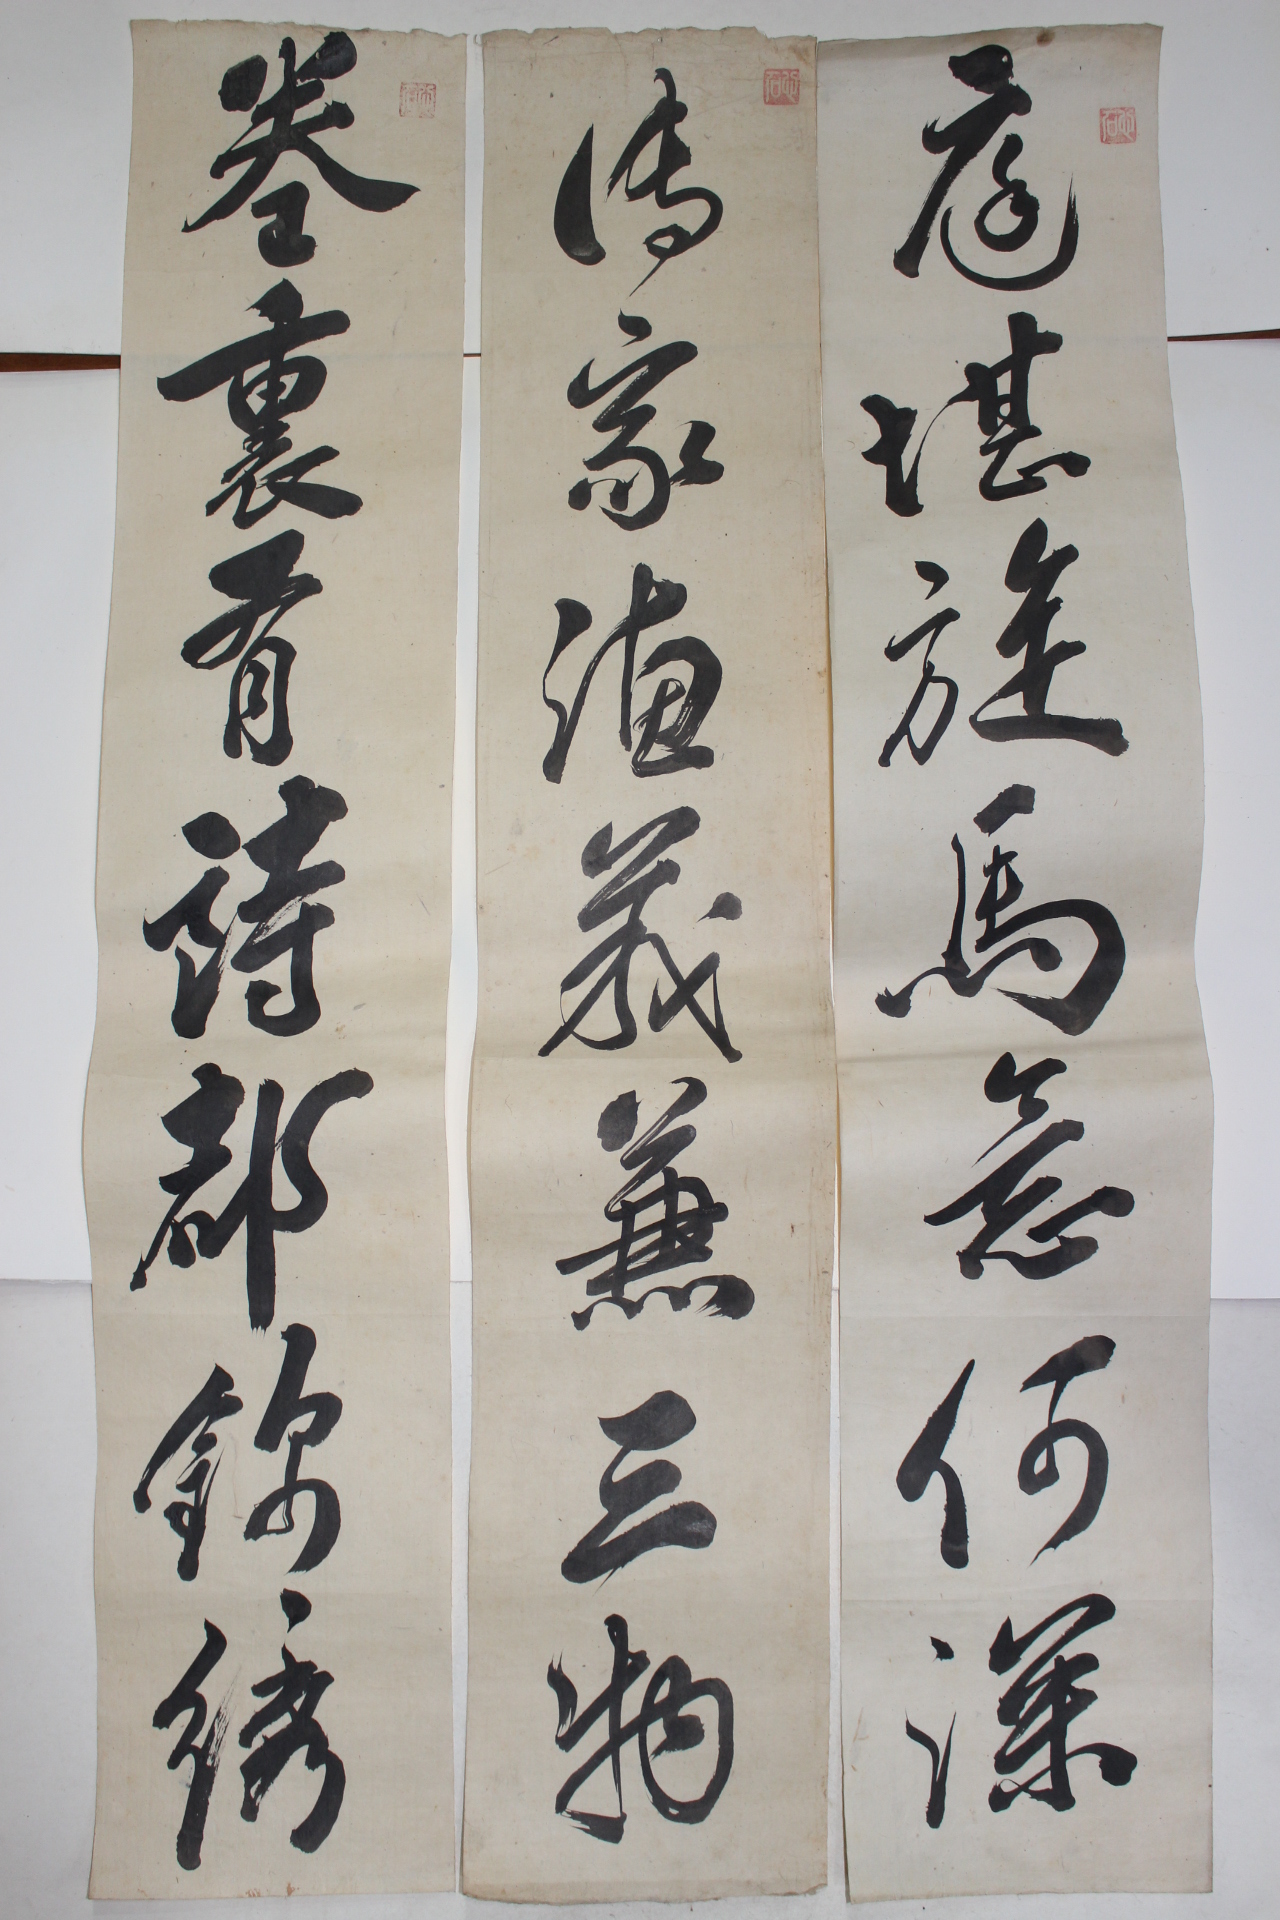 庭堪旋馬意何深
傳家德義兼三物
卷裏有詩都錦繡